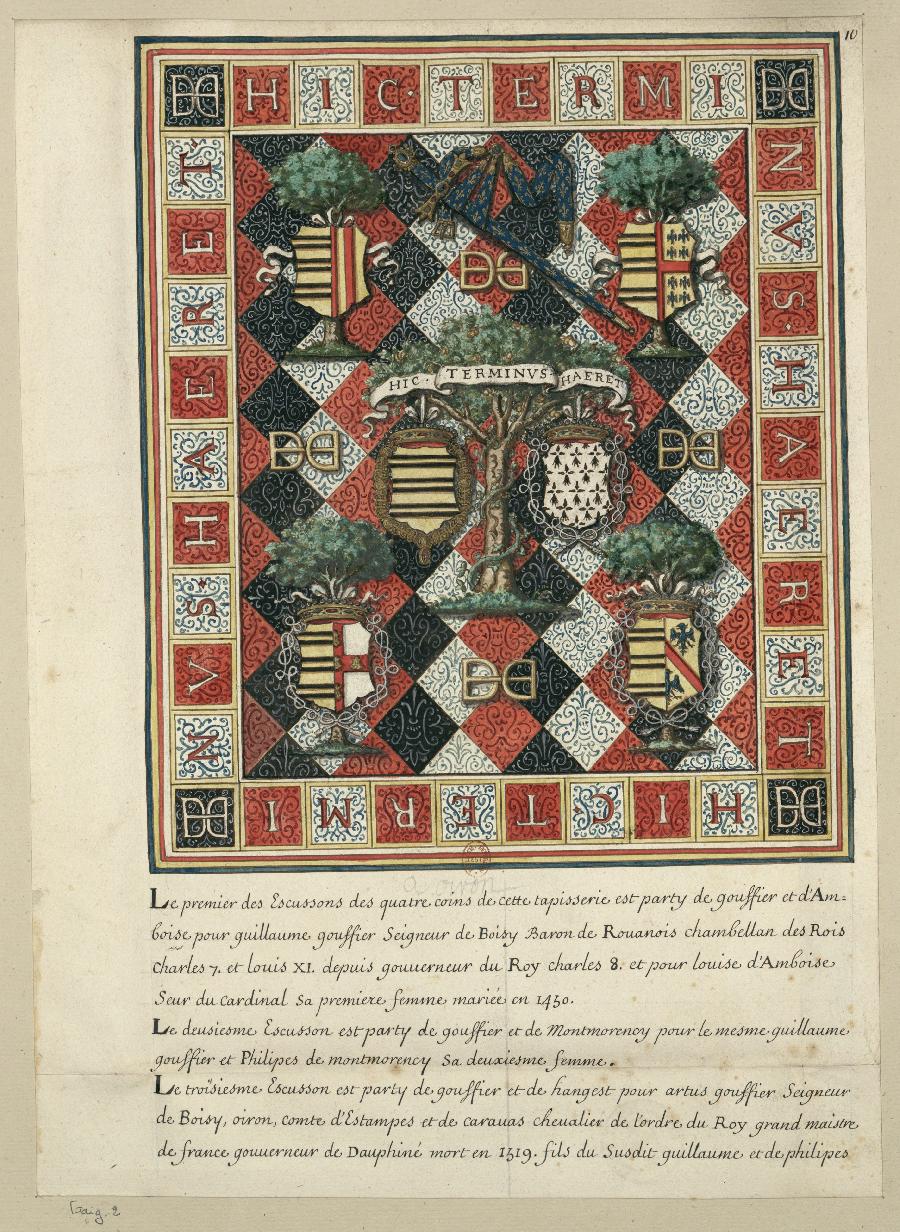 10
HIC·TERMI
NVS·HAERET
HIC TERMI
NVS·HAERET·
HIC· TERMINVS HAERET
Le premier des Escussons des quatre coins de cette tapisserie est party de gouffier et d'Am=
boise pour guillaume gouffier Seigneur de Boisy Baron de Rouanois chambellan des Rois
Charles 7. et louis XI. depuis gouuerneur du Roy charles 8. et pour louise d'Amboise
Seur du cardinal Sa premiere femme mariée en 1450.
Le deusiesme Escusson est party de gouffier et de Montmorency pour le mesme guillaume
gouffier et Philipes de montmorency Sa deuxiesme femme.
Le troisiesme Escusson est party de gouffier et de hangest pour artus gouffier Seigneur
de Boisy, oiron, comte d'Estampes et de carauas cheualier de l'ordre du Roy grand maistre
de france gouuerneur de Dauphiné mort en 1519. fils du Susdit guillaume et de philipes